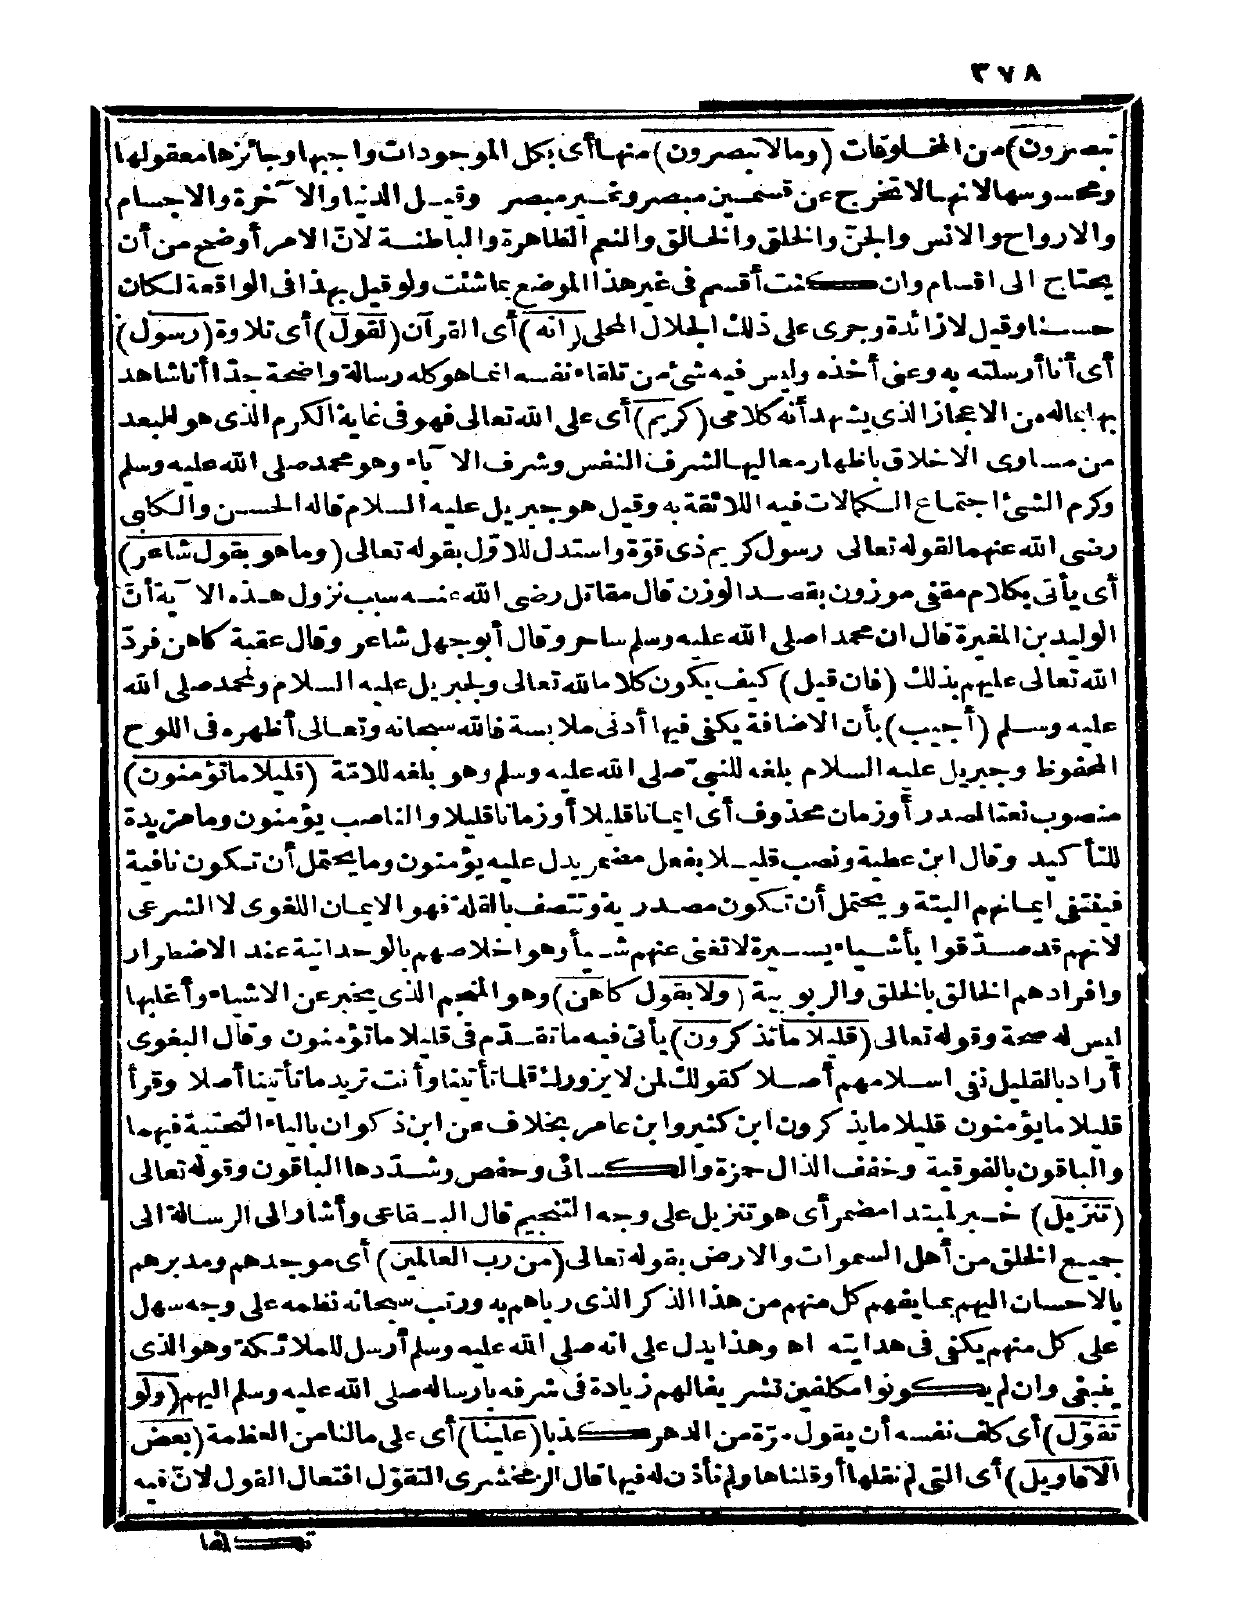 ٣٧٨
تبصرون) من المخلوقات (وما لا تبصرون) منها أى بكل الموجودات واجبها وجائزها معقولها
ومحسوسها لانها لا تخرج عن قسمين مبصر وغير مبصر وقيل الدنيا والآخرة والاجسام
والارواح والانس والجنّ والخلق والخالق والنعم الظاهرة والباطنة لانّ الامر أوضح من أن
يحتاج الى اقسام وان كنت أقسم فى غير هذا الموضع بما شئت ولو قيل بهذا فى الواقعة لكان
حسنا وقيل لا زائدة وجرى على ذلك الجلال المحلى (انه) أى القرآن (لقول) أى تلاوة (رسول)
أى أنا أرسلته به وعنى أخذه وليس فيه شئ من تلقاء نفسه انما هو كله رسالة واضحة جدّا أنا شاهد
بها بماله من الاعجاز الذى يشهد أنه كلامى (كريم) أى على الله تعالى فهو فى غاية الكرم الذى هو البعد
من مساوى الاخلاق باظهار معاليها الشرف النفس وشرف الآباء وهو محمد صلى الله عليه وسلم
وكرم الشئ اجتماع الكمالات فيه اللائقة به وقيل هو جبريل عليه السلام قاله الحسن والكلبى
رضى الله عنهما لقوله تعالى رسول كريم ذى قوّة واستدل للاوّل بقوله تعالى (وما هو بقول شاعر)
أى يأتى بكلام مقفى موزون بقصد الوزن قال مقاتل رضى الله عنه سبب نزول هذه الآية أنّ
الوليد بن المغيرة قال ان محمدا صلى الله عليه وسلم ساحر وقال أبو جهل شاعر وقال عقبة كاهن فردّ
الله تعالى عليهم بذلك (فان قيل) كيف يكون كلاما لله تعالى ولجبريل عليه السلام ولمحمد صلى الله
عليه وسلم (أجيب) بأن الاضافة يكفى فيها أدنى ملابسة فالله سبحانه وتعالى أظهره فى اللوح
المحفوظ وجبريل عليه السلام بلغه للنبىّ صلى الله عليه وسلم وهو بلغه للامّة (قليلا ما تؤمنون)
منصوب نعتا لمصدر أو زمان محذوف أى ايمانا قليلا أو زمانا قليلا والناصب يؤمنون وما مزيدة
للتأكيد وقال ابن عطية ونصب قليلا بفعل مضمر يدل عليه يؤمنون وما يحتمل أن تكون نافية
فينتفى ايمانهم البتة ويحتمل أن تكون مصدرية وتتصف بالقلة فهو الايمان اللغوى لا الشرعى
لانهم قد صدّقوا بأشياء يسيرة لا تغنى عنهم شيأ وهو اخلاصهم بالوحدانية عند الاضطرار
وافرادهم الخالق بالخلق والربوبية (ولا بقول كاهن) وهو المنجم الذى يخبر عن الاشياء وأغلبها
ليس له صحة وقوله تعالى (قليلا ما تذكرون) يأتى فيه ما تقدّم فى قليلا ما تؤمنون وقال البغوى
أراد بالقليل نفى اسلامهم أصلا كقولك لمن لا يزورك قلما تأتينا وأنت تريد ما تأتينا أصلا وقرأ
قليلا ما يؤمنون قليلا ما يذكرون ابن كثير وابن عامر بخلاف عن ابن ذكوان بالياء التحتية فيهما
والباقون بالفوقية وخفف الذال حمزة والكسائى وحفص وشدّدها الباقون وقوله تعالى
(تنزيل) خبر لمبتدا مضمر أى هو تنزيل على وجه التنجيم قال البقاعى وأشار الى الرسالة الى
جميع الخلق من أهل السموات والارض بقوله تعالى (من رب العالمين) أى موجدهم ومدبرهم
بالاحسان اليهم بما يفهم كل منهم من هذا الذكر الذى رباهم به ورتب سبحانه نظمه على وجه سهل
على كل منهم يكفى فى هدايته اه وهذا يدل على انه صلى الله عليه وسلم أرسل للملائكة وهو الذى
ينبغى وان لم يكونوا مكلفين تشريفا لهم زيادة فى شرفه بارساله صلى الله عليه وسلم اليهم (ولو
تقوّل) أى كلف نفسه أن يقول مرّة من الدهر كذبا (علينا) أى على مالنا من العظمة (بعض
الاقاويل) أى التى لم نقلها أو قلناها ولم نأذن له فيها قال الزمخشرى التقوّل افتعال القول لانّ فيه
تكلفا